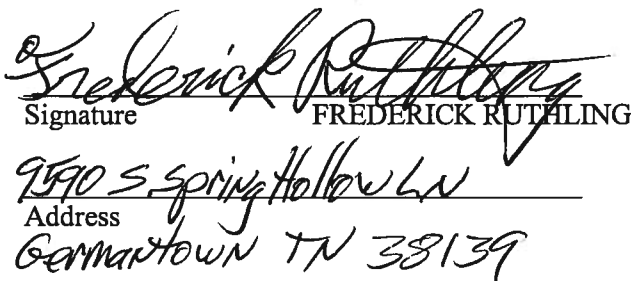 Frederick Ruthling
Signature FREDERICK RUTHLING
9590 S. Spring Hollow LN
Address
Germantown TN 38139